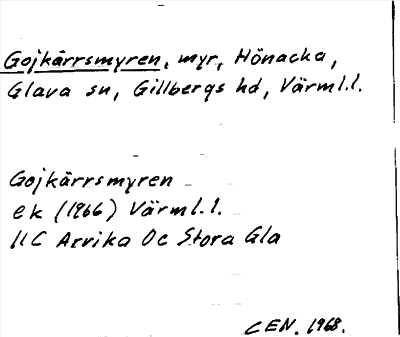 Gojkärrsmyren, myr, Hönacka,
Glava sn, Gillbergs hd, Värml.l.
Gojkärrsmyren
ek (1966) Värml.l.
11C Arvika Oc Stora Gla
CEN. 1968.